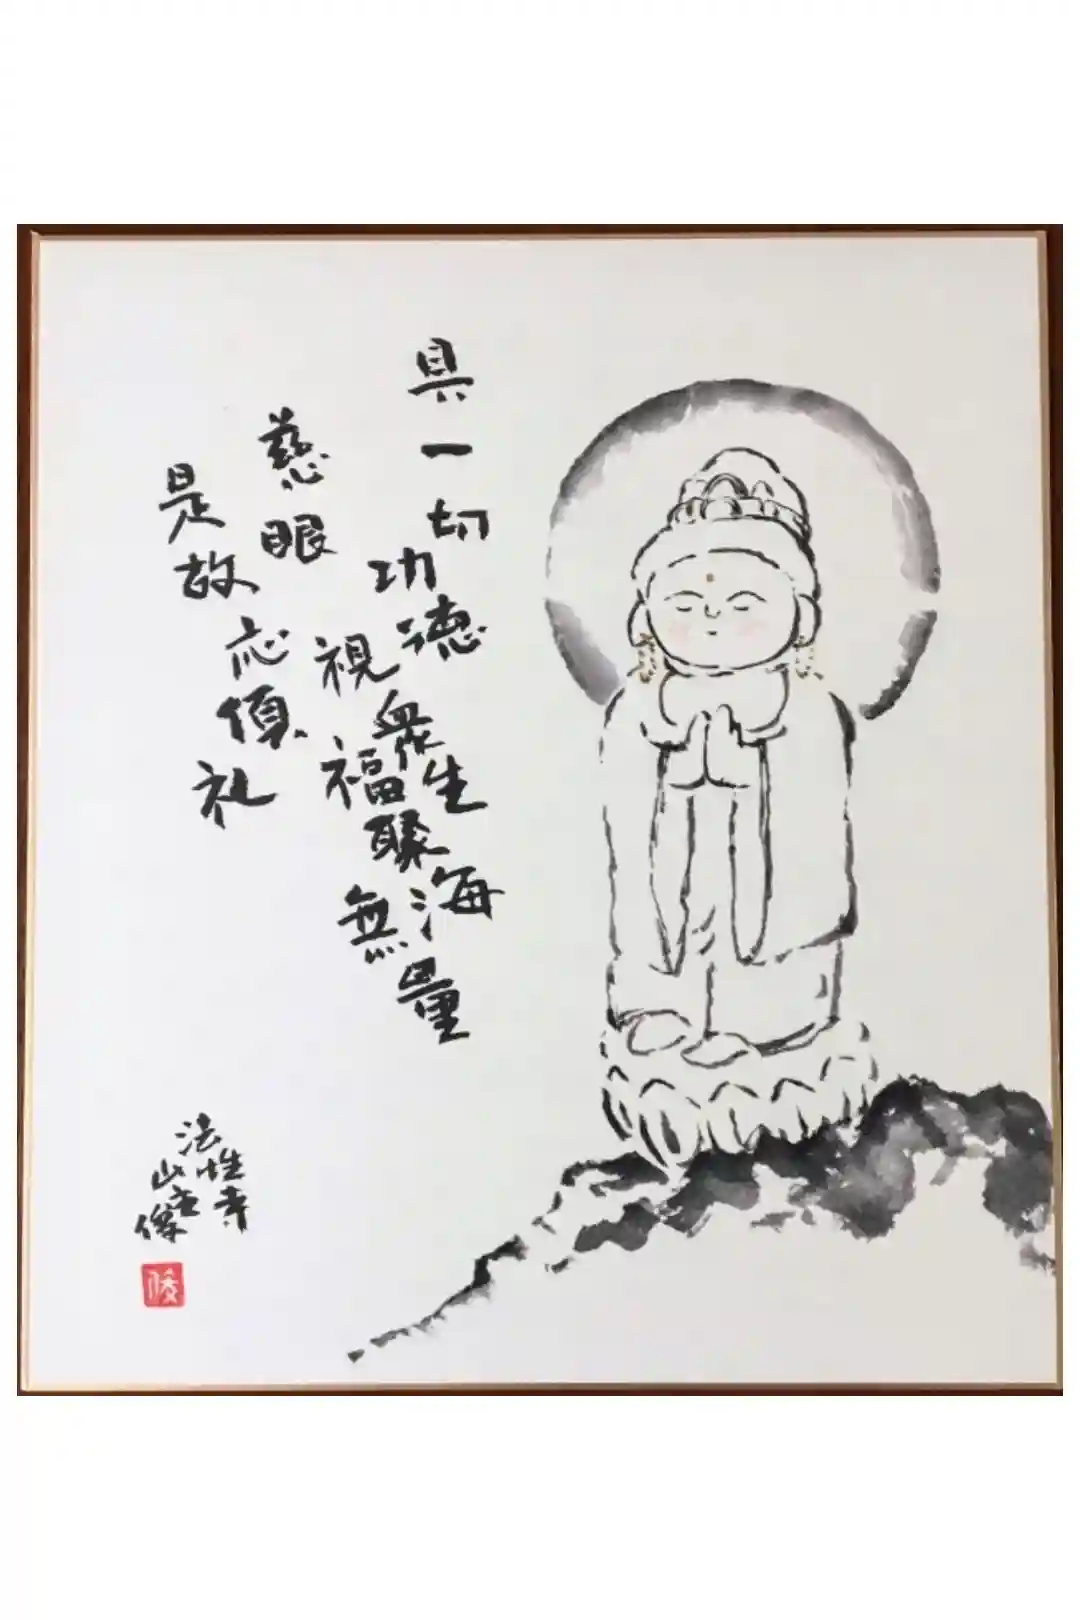 具一切功徳
慈眼視衆生
福聚海無量
是故応頂礼
法性寺
山主